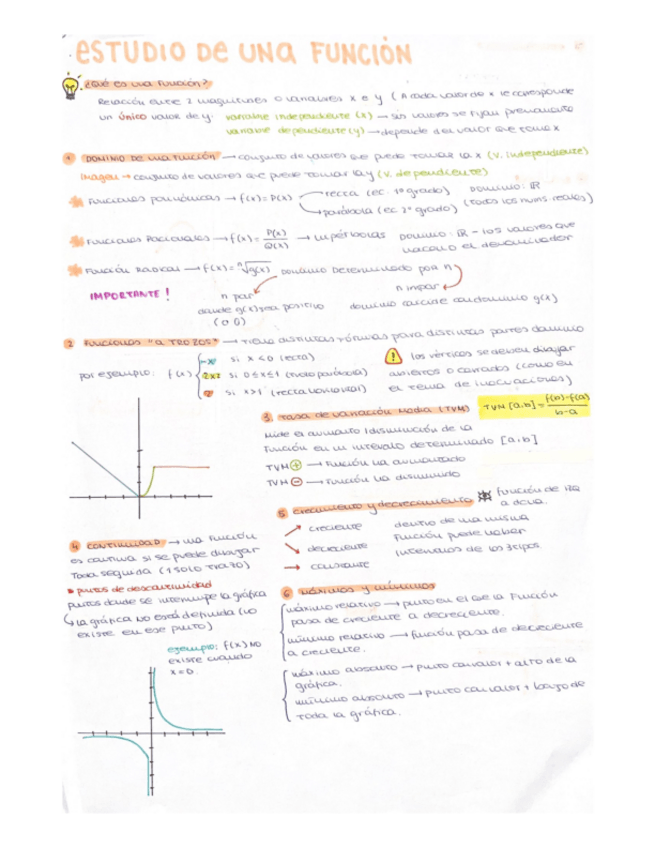 ESTUDIO DE UNA FUNCIÓN
¿Qué es una función?
Relación entre 2 magnitudes o variables x e y (A cada valor de x le corresponde
un único valor de y. variable independiente (x) → sin valores se fijan previamente
variable dependiente (y) → depende del valor que toma x
1 DOMINIO DE UNA FUNCIÓN → conjunto de valores que puede tomar la x (v. independiente)
Imagen → conjunto de valores que puede tomar la y (v. dependiente)
Funciones polinómicas → f(x) = P(x) → recta (ec. 1º grado) DOMINIO: ℝ
→ parábola (ec 2º grado) (todos los nums. reales)
Funciones Racionales → f(x) = P(x)/Q(x) → hipérbolas DOMINIO: ℝ - los valores que
hacen 0 el denominador
Función Radical → f(x) = ⁿ√g(x) dominio determinado por n
IMPORTANTE! n par n impar
donde g(x) sea positivo dominio coincide con dominio g(x)
(o 0)
2 Funciones "a TROZOS" → tiene distintas fórmulas para distintas partes dominio
por ejemplo: f(x) -x si x < 0 (recta)
2x² si 0 ≤ x ≤ 1 (trozo parábola)
2 si x > 1 (recta horizontal)
los vértices se deben dibujar
abiertos o cerrados (como en
el tema de inecuaciones)
3. Tasa de variación media (TVM) TVM [a,b] = f(b)-f(a)/b-a
Mide el aumento/disminución de la
función en un intervalo determinado [a,b]
TVM + → función ha aumentado
TVM - → función ha disminuido
5 crecimiento y decrecimiento función de izq
a dcha.
→ creciente
→ decreciente
→ constante
dentro de una misma
función puede haber
intervalos de los 3 tipos.
4 CONTINUIDAD → una función
es continua si se puede dibujar
toda seguida (1 solo trazo)
puntos de descontinuidad
puntos donde se interrumpe la gráfica
↳ la gráfica no está definida (no
existe en ese punto)
ejemplo: f(x) no
existe cuando
x = 0.
6 máximos y mínimos
máximo relativo → punto en el que la función
pasa de creciente a decreciente.
mínimo relativo → función pasa de decreciente
a creciente.
máximo absoluto → punto con valor + alto de la
gráfica.
mínimo absoluto → punto con valor + bajo de
toda la gráfica.